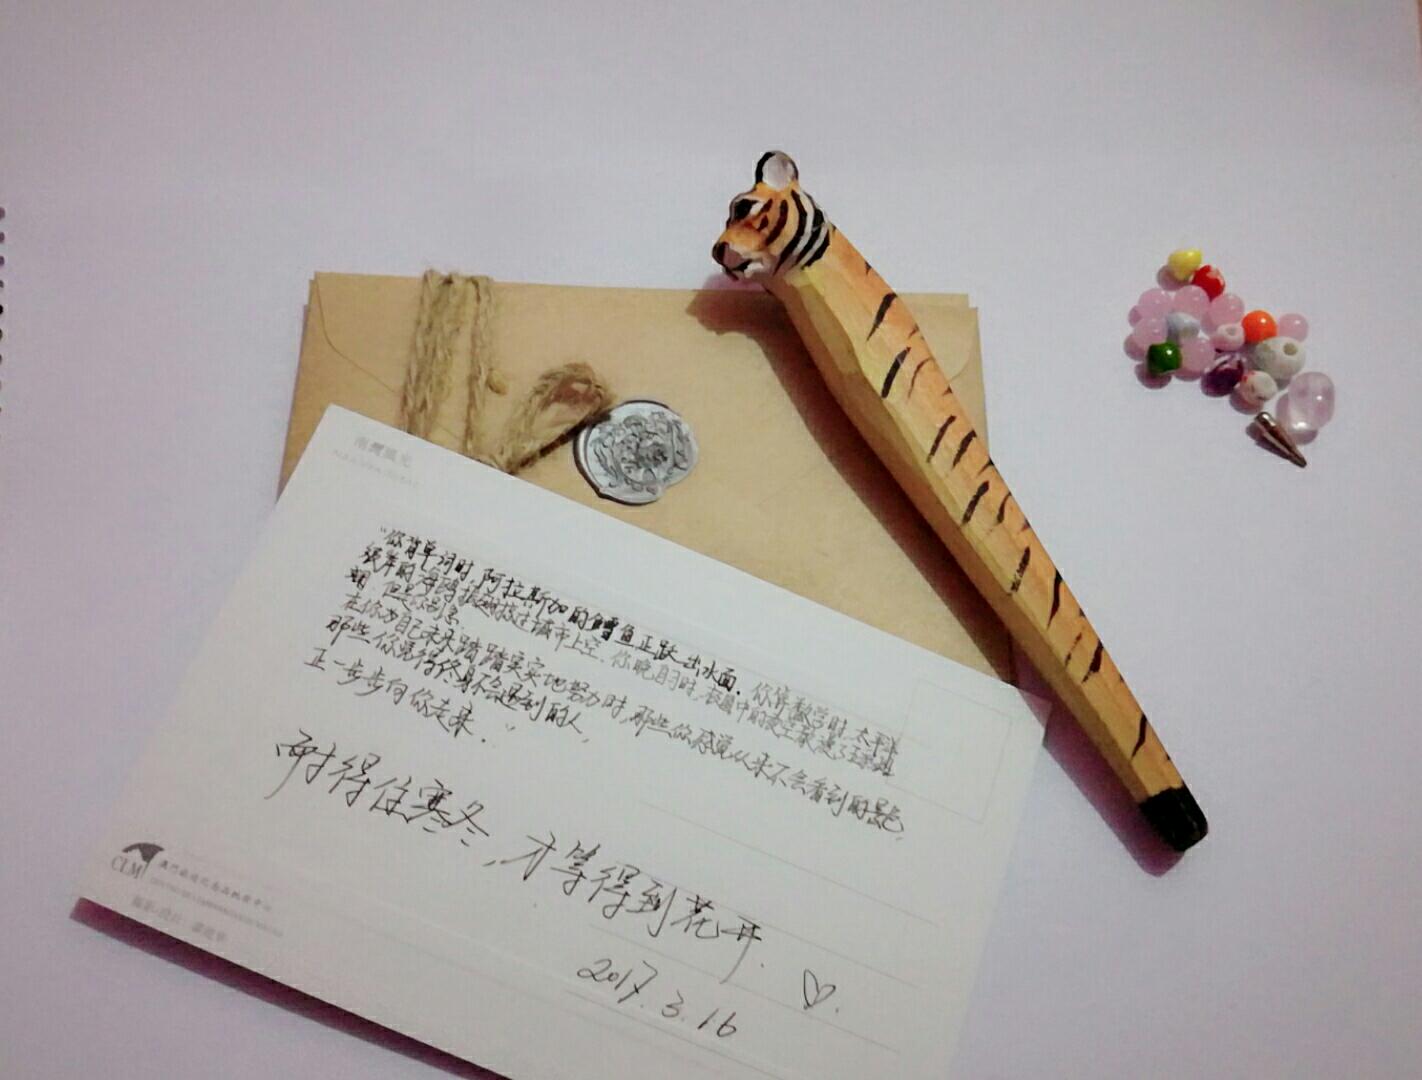 南灣風光
“你背单词时,阿拉斯加的鳕鱼正跃出水面。你算数学时,太平洋
彼岸的海鸥振翅掠过城市上空。你晚自习时,极圈中的夜空散漫了五彩斑
斓。但是你别急。
在你为自己未来踏踏实实地努力时,那些你感觉从来不会看到的景色,
那些你觉得终身不会遇到的人,
正一步步向你走来。”
耐得住寒冬,才等得到花开.
2017.3.16
CLM
澳門旅遊紀念品批發中心
攝影·設計: